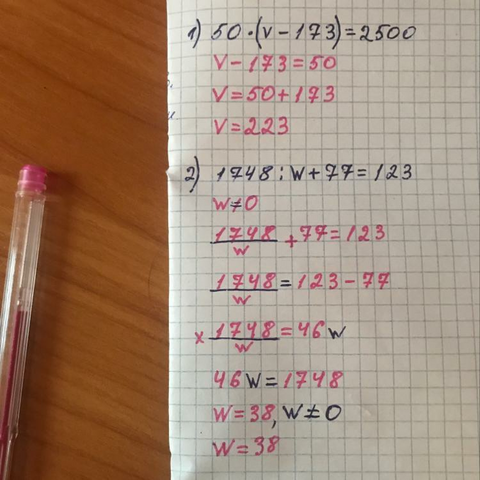 1) 50·(v-173)=2500
v-173=50
v=50+173
v=223
2) 1748:w+77=123
w≠0
1748/w+77=123
1748/w=123-77
x 1748/w=46w
46w=1748
w=38, w≠0
w=38